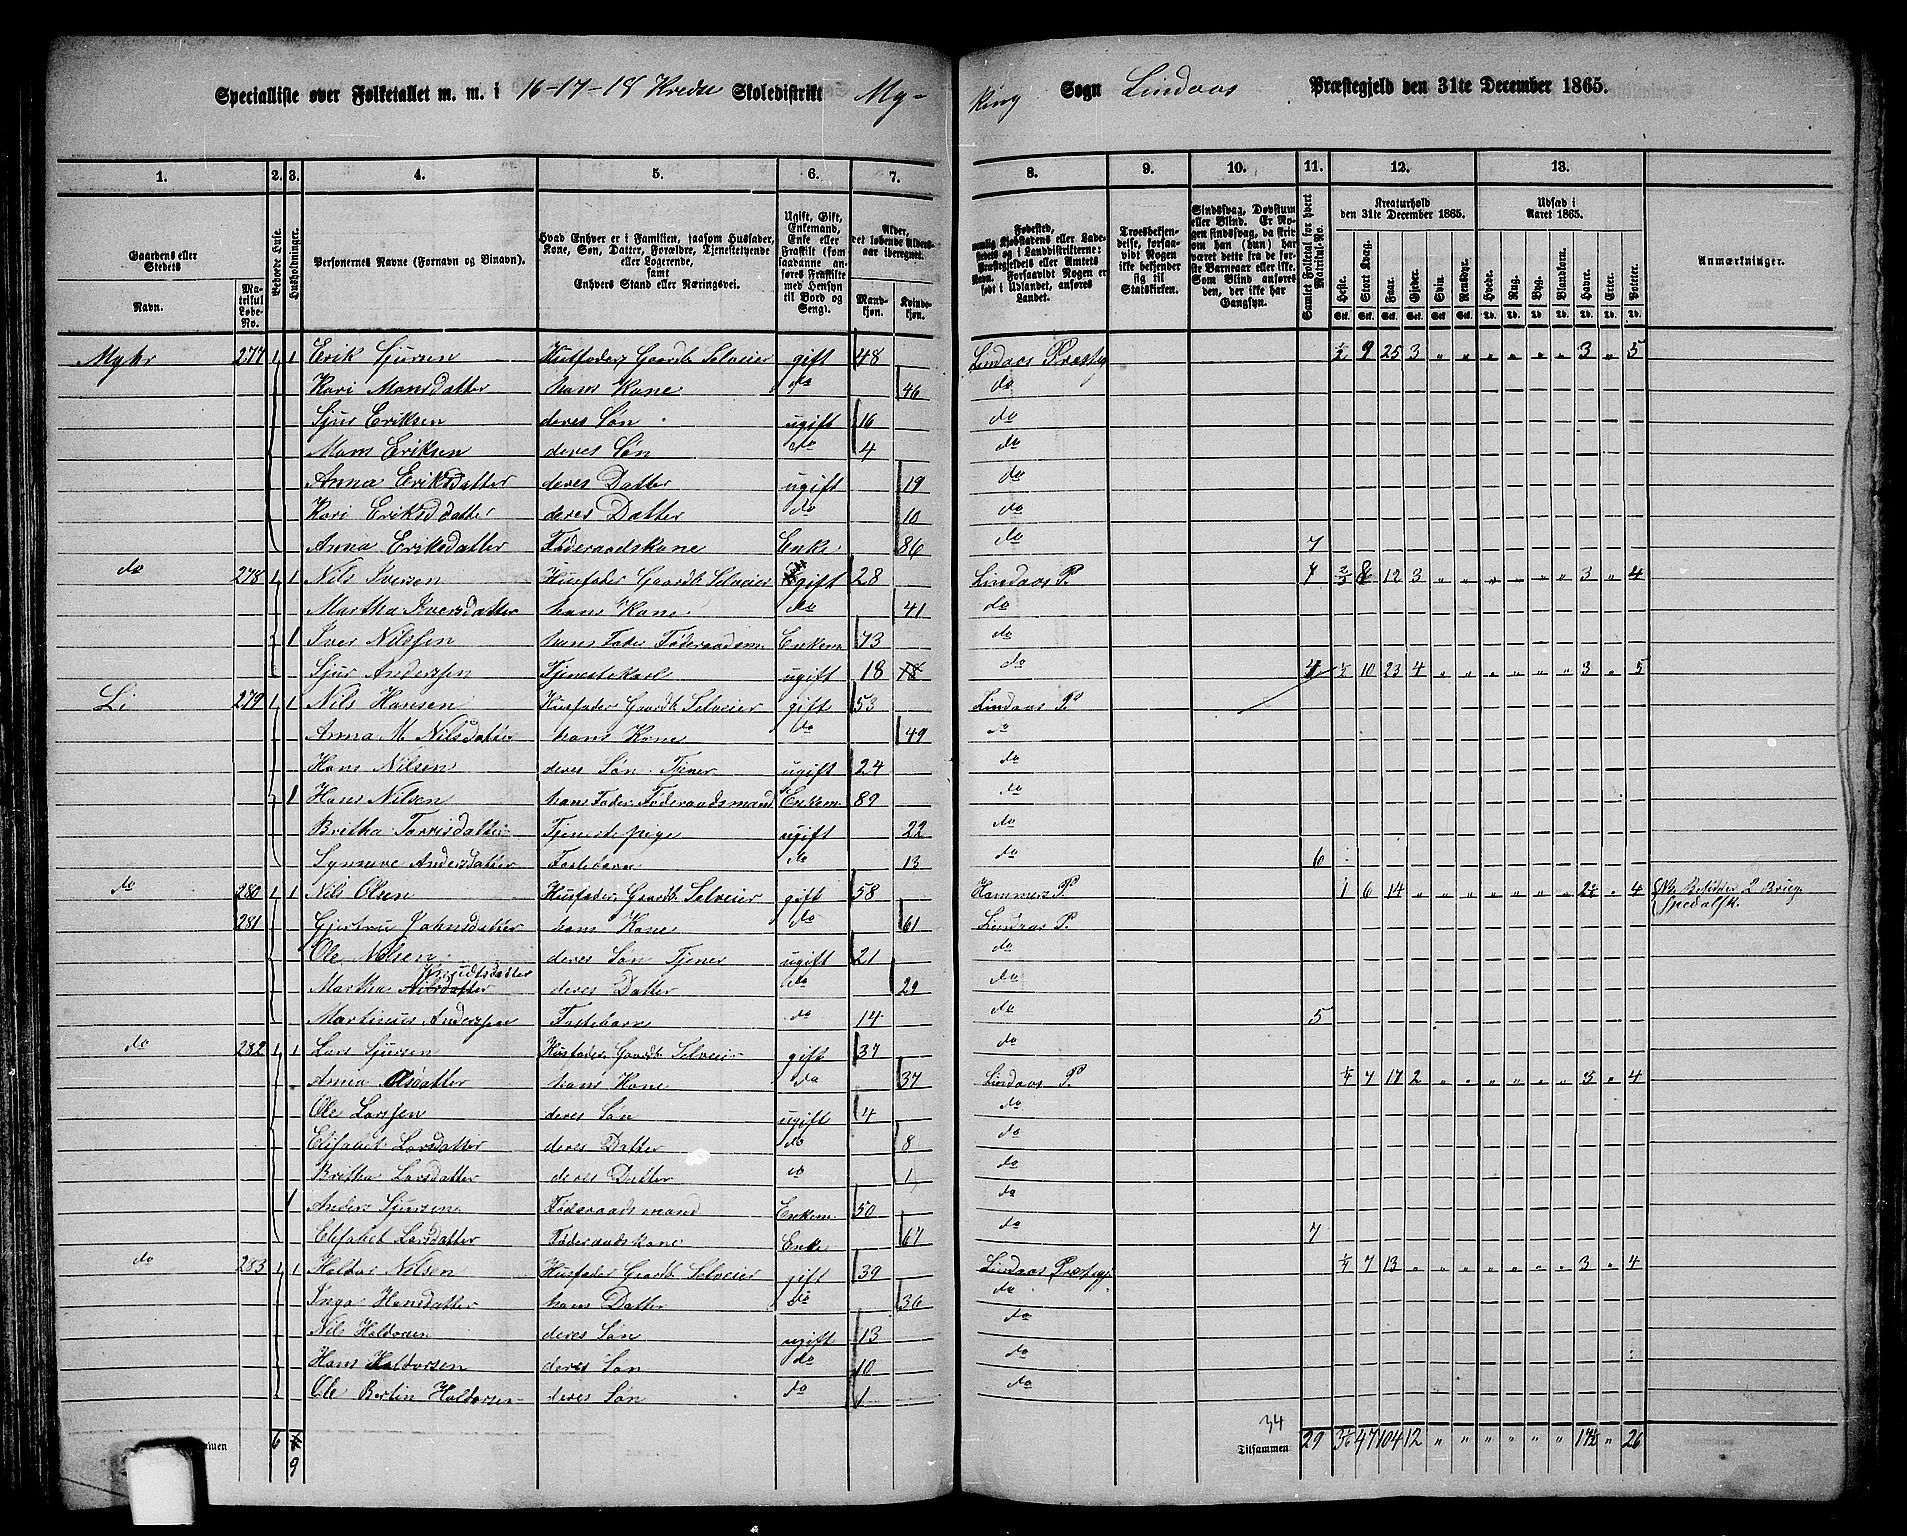 Specialliste over Folketallet m. m. i 16-17-18 Kreds Skoledistrikt My-
king Sogn Lindaas Præstegjeld den 31te December 1865.
1. 2. 3. 4. 5. 6. 7. 8. 9. 10. 11. 12. 13.
Gaardens eller Stedets Navn. Matrikul Løbe-No. Beboede Huse. Husholdninger. Personernes Navne (Fornavn og Binavn). Hvad Enhver er i Familien, saasom Husfader, Kone, Søn, Datter, Forældre, Tjenestetyende eller Logerende, samt Enhvers Stand eller Næringsvei. Ugift, Gift, Enkemand, Enke eller Fraskilt (som saadanne anføres Fraskilte med Hensyn til Bord og Seng). Alder, det løbende Aldersaar iberegnet. Mandkjøn. Kvindekjøn.
Fødested, Troesbekjendelse, forsaavidt Nogen ikke bekjender sig til Statskirken. Samlet Folketal for hvert Matrikul-No. Kreaturhold den 31te December 1865. Udsæd i Aaret 1865. Anmærkninger.
Heste. Stort Kvæg. Faar. Gjeder. Svin. Rensdyr. Hvede. Rug. Byg. Blandkorn. Havre. Erter. Poteter.
Myhr 277 1 1 Erik Sjursen Husfader Gaardb. Selveier gift 48 Lindaas Præstg 1/2 9 25 3 " " " " " " 3 " 5
Kari Monsdatter hans Kone do 46 do
Sjur Eriksen deres Søn ugift 16 do
Mons Eriksen deres Søn do 4 do
Anna Eriksdatter deres Datter ugift 19 do
Kari Eriksdatter deres Datter do 10 do
Anna Eriksdatter Føderaadskone Enke 86 do 7
do 278 1 1 Nils Iversen Husfader Gaardb. Selveier gift 28 Lindaas P. 12 3 " " " " " " 3 " 4
Martha Iversdatter hans Kone do 41 do
1 Iver Nilssen hans Fader Føderaadsm. Enkem 73 do
Sjur Anderssen Tjenestekarl ugift 18 do 4 1/2 10 23 4 " " " " " " 3 " 5
Li 279 1 1 Nils Hansen Husfader Gaardb. Selveier gift 53 Lindaas P.
Anna M Nilsdatter hans Kone do 49 do
Hans Nilsen deres Søn Tjener ugift 24 do
1 Hans Nilsen hans Fader Føderaadsmand Enkem 89 do
Britha Torrisdatter Tjenestepige ugift 22 do
Synneve Andersdatter Fosterbarn do 13 do 6
do 280 1 1 Nils Olsen Husfader Gaardb. Selveier gift 58 Hammers P. 1 6 14 " " " " " " " 2½ " 4
281 Gjertru Johnsdatter hans Kone do 61 Lindaas P.
Ole Nilsen deres Søn Tjener ugift 21 do
Knudtsdatter
Martha Nilsdatter deres Datter do 29 do
Martinus Anderssen Fosterbarn do 14 do 5
do 282 1 1 Lars Sjursen Husfader Gaardb. Selveier gift 37 do
Anna Olsdatter hans Kone do 37 Lindaas P. 1/4 7 17 2 " " " " " " 3 " 4
Ole Larssen deres Søn ugift 4 do
Elisabet Larsdatter deres Datter do 8 do
Britha Larsdatter deres Datter do 1 do
1 Anders Sjursen Føderaadsmand Enkem 50 do
Elisabet Larsdatter Føderaadskone Enke 67 do 7
do 283 1 1 Haldor Nilsen Husfader Gaardb. Selveier gift 39 Lindaas Præstegj 1/4 7 13 " " " " " " " 3 " 4
Inga Hansdatter hans Datter do 36 do
Nils Haldorsen deres Søn ugift 13 do
Hans Haldorsen deres Søn do 10 do
Ole Bertin Haldorsen deres Søn do 1 do
34
6 9 Tilsammen 29 47 104 12 " " " " " " 17½ " 26